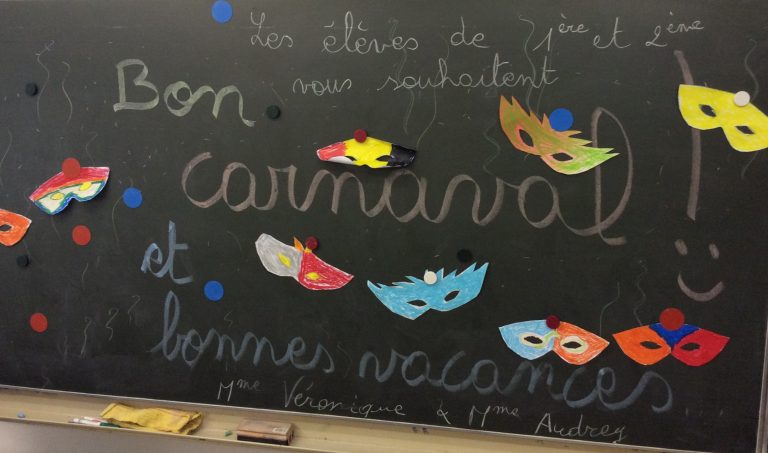 Les élèves de 1ère et 2ème
vous souhaitent
Bon
carnaval !
et
bonnes vacances...
Mme Véronique & Mme Audrey